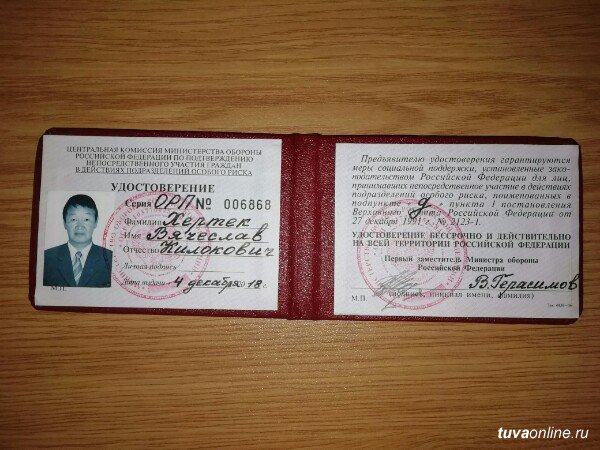 ЦЕНТРАЛЬНАЯ КОМИССИЯ МИНИСТЕРСТВА ОБОРОНЫ
РОССИЙСКОЙ ФЕДЕРАЦИИ ПО ПОДТВЕРЖДЕНИЮ
НЕПОСРЕДСТВЕННОГО УЧАСТИЯ ГРАЖДАН
В ДЕЙСТВИЯХ ПОДРАЗДЕЛЕНИЙ ОСОБОГО РИСКА
УДОСТОВЕРЕНИЕ
Серия ОРП № 006868
Фамилия Хертек
Имя Вячеслав
Отчество Килокович
Личная подпись
Дата выдачи 4 декабря 2018 г.
М.П.
Предъявителю удостоверения гарантируются
меры социальной поддержки, установленные зако-
нодательством Российской Федерации для лиц,
принимавших непосредственное участие в действиях
подразделений особого риска, поименованных в
подпункте д пункта 1 постановления
Верховного Совета Российской Федерации от
27 декабря 1991 г. № 2123-1.
УДОСТОВЕРЕНИЕ БЕССРОЧНО И ДЕЙСТВИТЕЛЬНО
НА ВСЕЙ ТЕРРИТОРИИ РОССИЙСКОЙ ФЕДЕРАЦИИ
Первый заместитель Министра обороны
Российской Федерации
В. Герасимов
М.П. (подпись, инициал имени, фамилия)
tuvaonline.ru